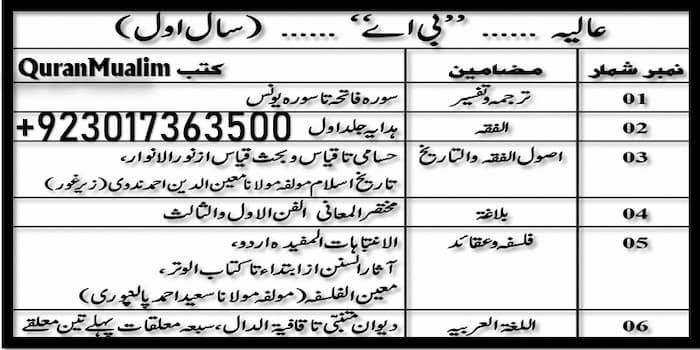 عالیہ ...... "بی اے" ...... (سال اول)
نمبر شمار مضامین کتب QuranMualim
01 ترجمہ و تفسیر سورہ فاتحہ تا سورہ یونس
02 الفقہ ہدایہ جلد اول +923017363500
03 اصول الفقہ والتاریخ حسامی تا قیاس و بحث قیاس از نور الانوار،
تاریخ اسلام مولفہ مولانا معین الدین احمد ندوی (زیر غور)
04 بلاغۃ مختصر المعانی الفن الاول والثالث
05 فلسفہ و عقائد الانتباہات المفیدہ اردو،
آثار السنن از ابتداء تا کتاب الوتر،
معین الفلسفہ (مولفہ مولانا سعید احمد پالنپوری)
06 اللغۃ العربیہ دیوان متنبی تا قافیۃ الدال، سبعہ معلقات پہلے تین معلقے